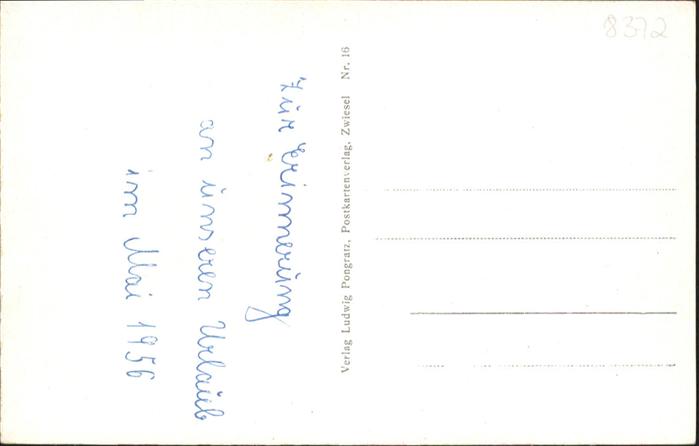 8372
Zur Erinnerung
an unseren Urlaub
im Mai 1956
Verlag Ludwig Pongratz, Postkartenverlag, Zwiesel Nr. 16